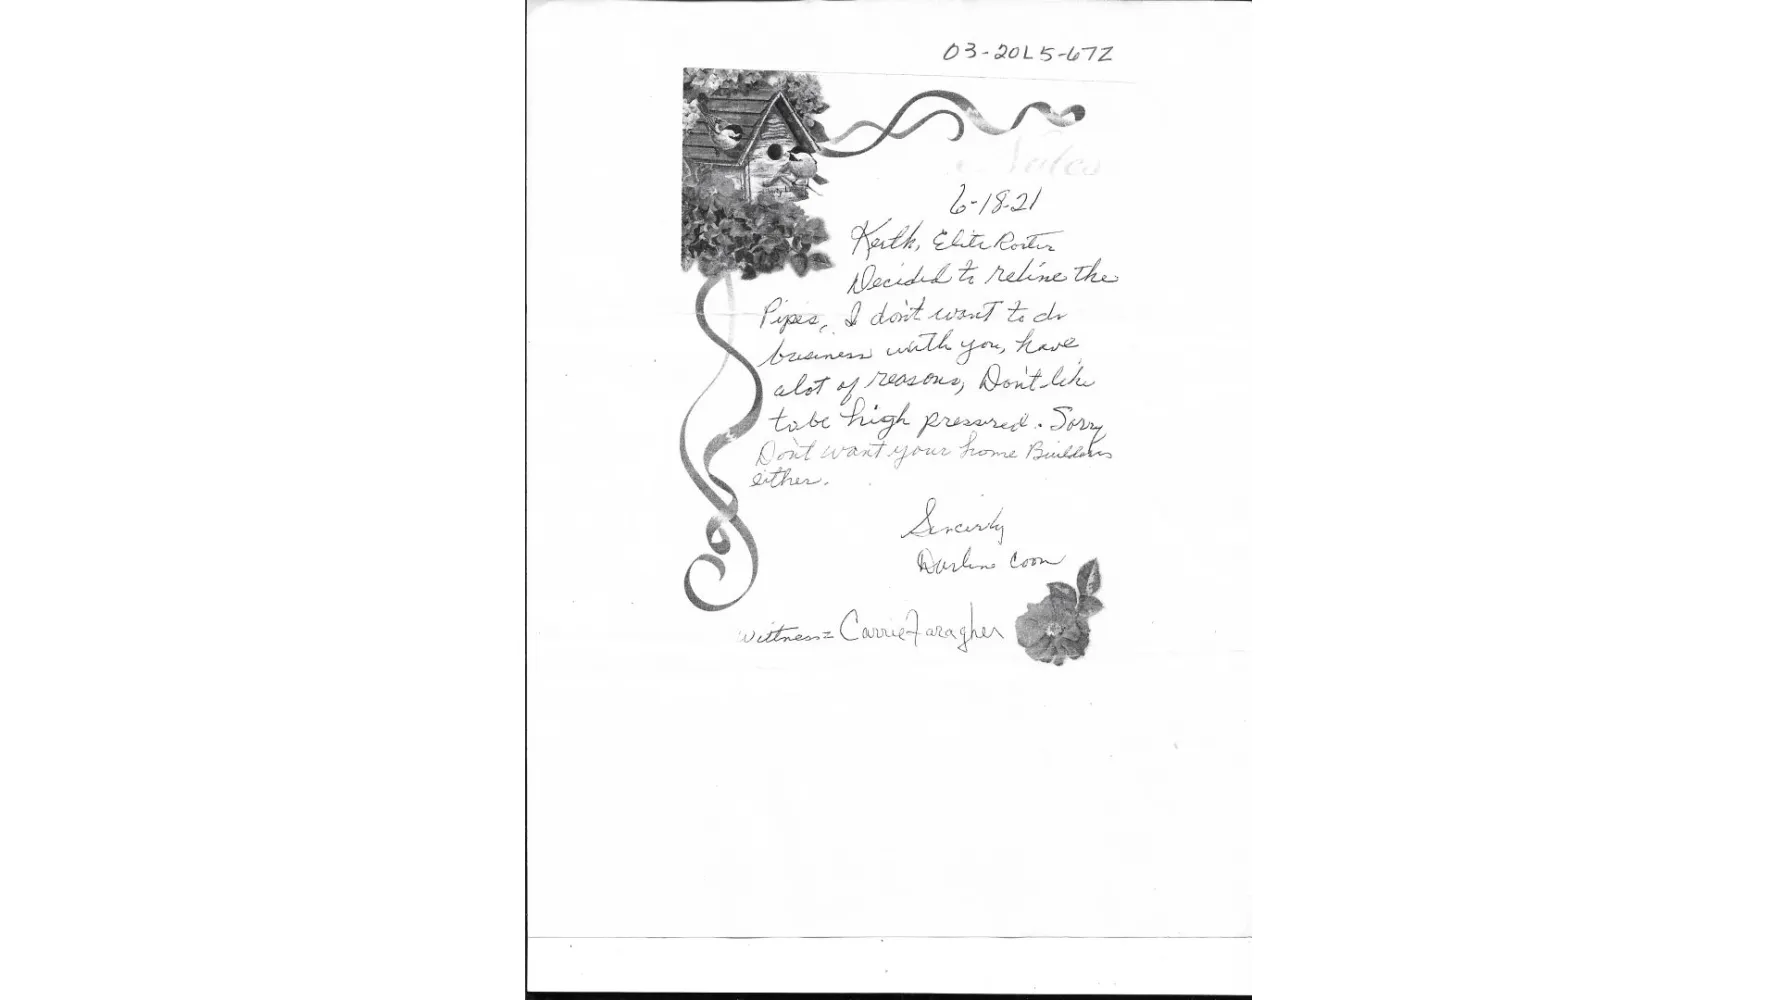 03-20L5-67Z
Notes
6-18-21
Keith, Elite Rooter
Decided to reline the
Pipes, I don't want to do
business with you, have
alot of reasons, Don't like
to be high pressured. Sorry
Don't want your home Builders
either.
Sincerly
Darline Coon
Wittness = Carrie Faragher